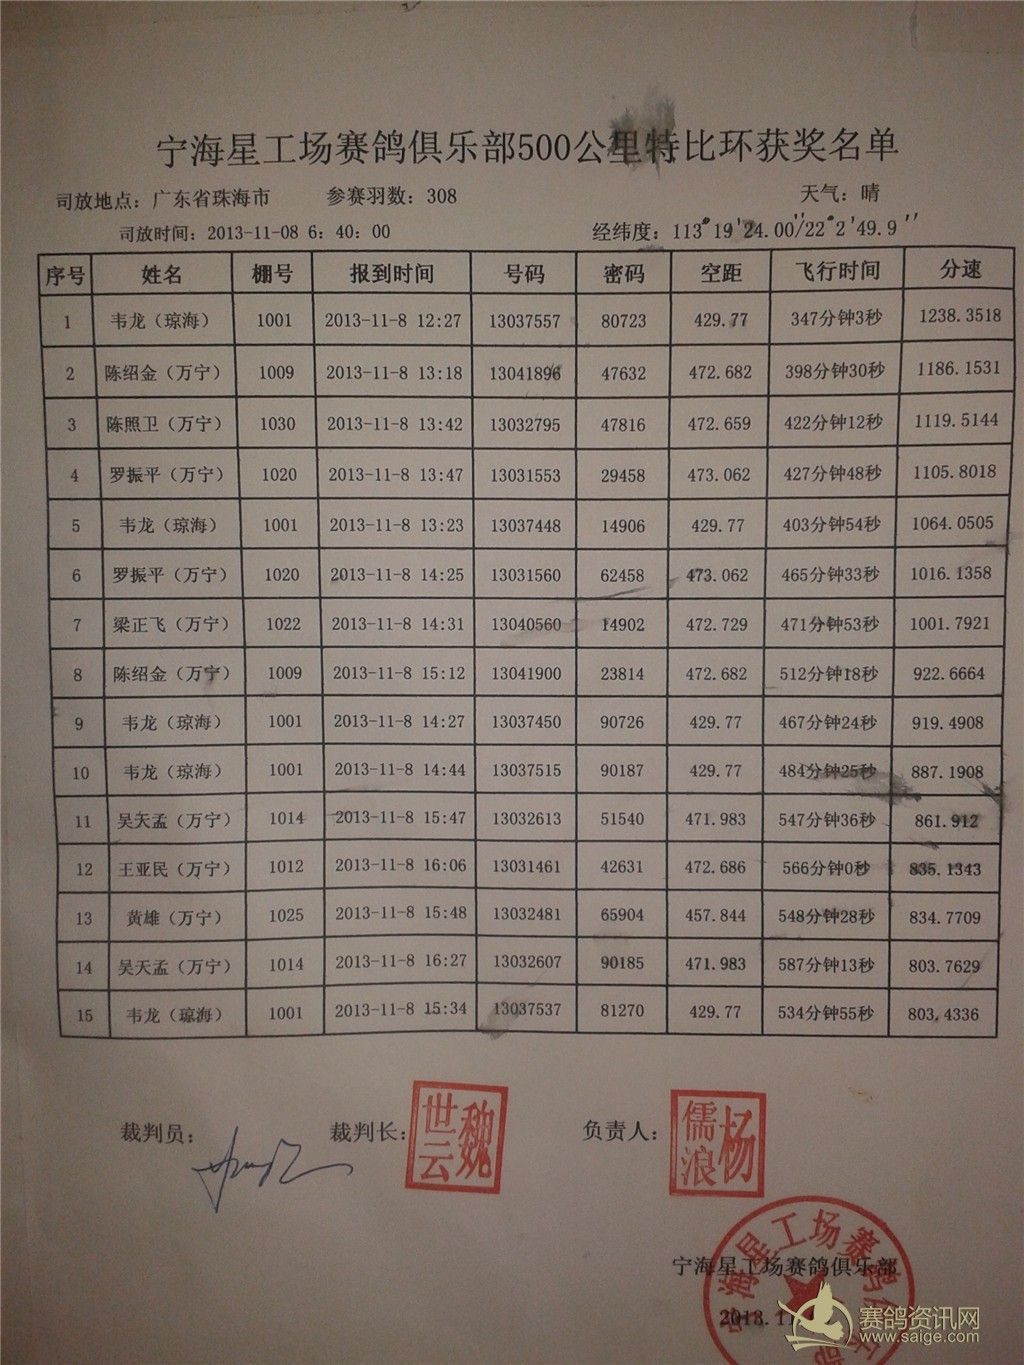 宁海星工场赛鸽俱乐部500公里特比环获奖名单
司放地点：广东省珠海市 参赛羽数：308 天气：晴
司放时间：2013-11-08 6：40：00 经纬度：113°19'24.00''/22°2'49.9''
序号 姓名 棚号 报到时间 号码 密码 空距 飞行时间 分速
1 韦龙（琼海） 1001 2013-11-8 12:27 13037557 80723 429.77 347分钟3秒 1238.3518
2 陈绍金（万宁） 1009 2013-11-8 13:18 13041896 47632 472.682 398分钟30秒 1186.1531
3 陈照卫（万宁） 1030 2013-11-8 13:42 13032795 47816 472.659 422分钟12秒 1119.5144
4 罗振平（万宁） 1020 2013-11-8 13:47 13031553 29458 473.062 427分钟48秒 1105.8018
5 韦龙（琼海） 1001 2013-11-8 13:23 13037448 14906 429.77 403分钟54秒 1064.0505
6 罗振平（万宁） 1020 2013-11-8 14:25 13031560 62458 473.062 465分钟33秒 1016.1358
7 梁正飞（万宁） 1022 2013-11-8 14:31 13040560 14902 472.729 471分钟53秒 1001.7921
8 陈绍金（万宁） 1009 2013-11-8 15:12 13041900 23814 472.682 512分钟18秒 922.6664
9 韦龙（琼海） 1001 2013-11-8 14:27 13037450 90726 429.77 467分钟24秒 919.4908
10 韦龙（琼海） 1001 2013-11-8 14:44 13037515 90187 429.77 484分钟25秒 887.1908
11 吴天孟（万宁） 1014 2013-11-8 15:47 13032613 51540 471.983 547分钟36秒 861.912
12 王亚民（万宁） 1012 2013-11-8 16:06 13031461 42631 472.686 566分钟0秒 835.1343
13 黄雄（万宁） 1025 2013-11-8 15:48 13032481 65904 457.844 548分钟28秒 834.7709
14 吴天孟（万宁） 1014 2013-11-8 16:27 13032607 90185 471.983 587分钟13秒 803.7629
15 韦龙（琼海） 1001 2013-11-8 15:34 13037537 81270 429.77 534分钟55秒 803.4336
裁判员： 裁判长：魏世云 负责人：杨儒浪
宁海星工场赛鸽俱乐部
宁海星工场赛鸽俱乐部
2013.11
赛鸽资讯网
www.saige.com